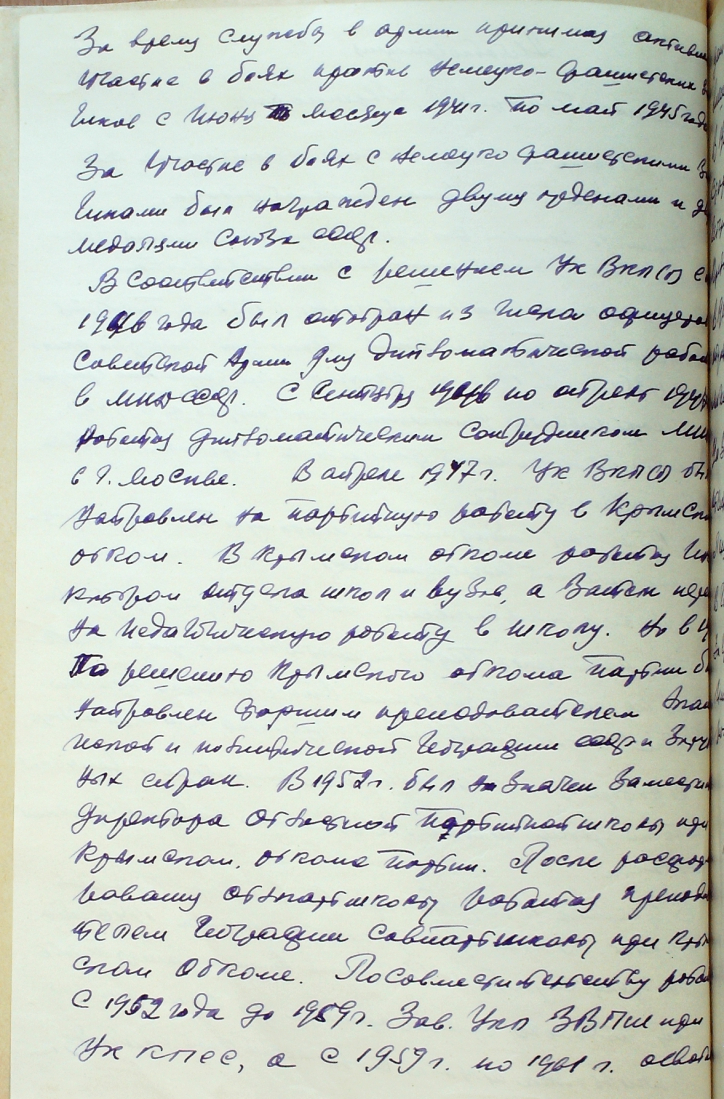 За время службы в армии принимал активн
участие в боях против немецко-фашистских за
чиков с июня месяца 1941г. по май 1945 года
За участие в боях с немецко фашистскими за
чиками был награжден двумя орденами и де
медалями Союза ССР.
В соответствии с решением Цк ВКП(б) с
1946 года был отобран из числа офицеров
Советской Армии для дипломатической работ
в МИД СССР. С Сентября 1946 по апрель 194
работал дипломатическим сотрудником МИД
в г. Москве. В апреле 1947 г. Цк ВКП(б) бы
направлен на партийную работу в Крымск
обком. В Крымском обкоме работал ин
ктором отдела школ и вузов, а затем пере
на педагогическую работу в школу. Но в
По решению Крымского обкома партии б
направлен старшим преподавателем
ической и политической географии СССР и Зару
ных стран. В 1952 г. был назначен Замести
Директора областной партийной школы при
Крымском обкоме партии. После расфор
рования облпартшколы работал препода
телем географии совпартшколы при Кры
ском Обкоме. По совместительству работ
С 1952 года до 1959 г. Зав. Укп ЗВПШ при
Цк КПСС, а с 1959 г. по 1961 г.